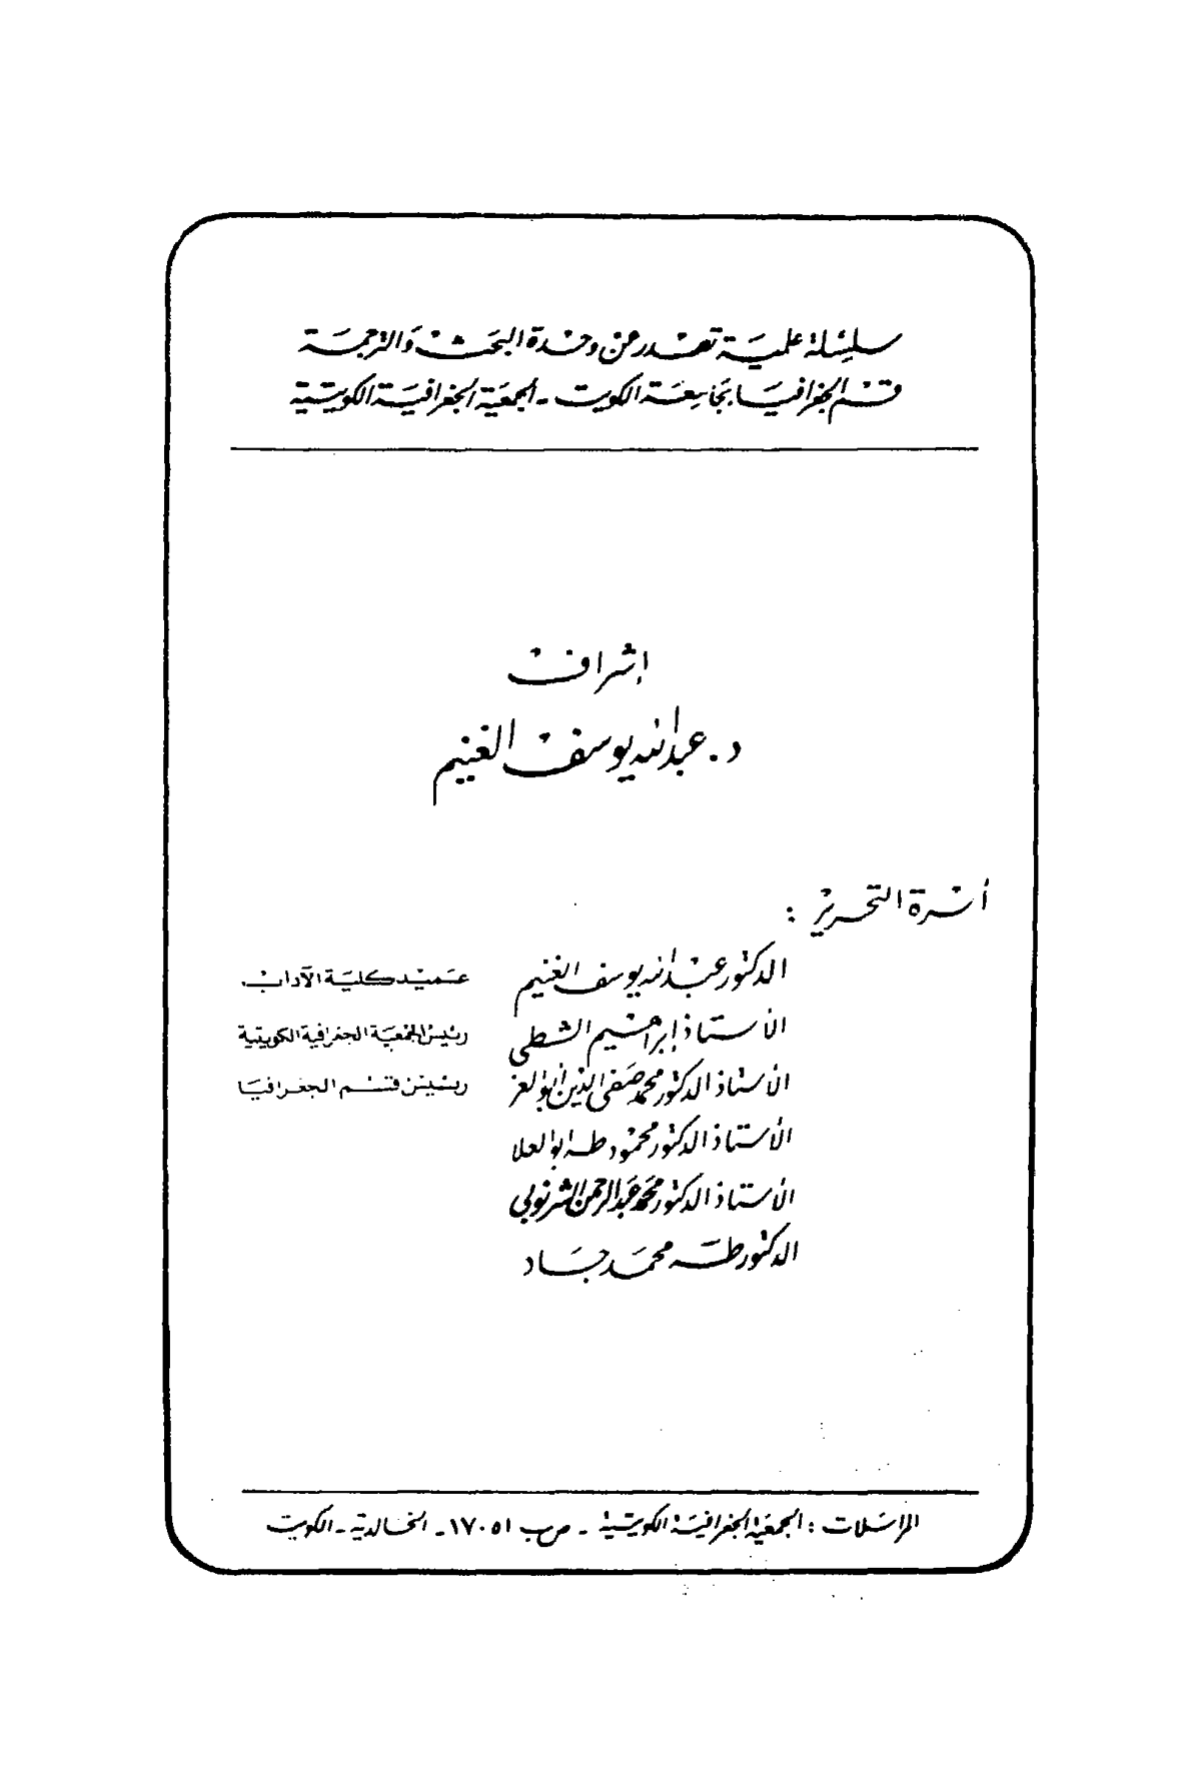 سلسلة علمية تصدر عن وحدة البحث والترجمة
قسم الجغرافيا بجامعة الكويت - الجمعية الجغرافية الكويتية
إشراف
د. عبدالله يوسف الغنيم
أسرة التحرير :
الدكتور عبدالله يوسف الغنيم عميد كلية الآداب
الأستاذ إبراهيم الشطي رئيس الجمعية الجغرافية الكويتية
الأستاذ الدكتور محمد صفي الدين أبو العز رئيس قسم الجغرافيا
الأستاذ الدكتور محمود طه ابو العلا
الأستاذ الدكتور محمد عبد الرحمن الشرنوبي
الدكتور طه محمد جاد
المراسلات : الجمعية الجغرافية الكويتية - ص ب ١٧٠٥١ - الخالدية - الكويت